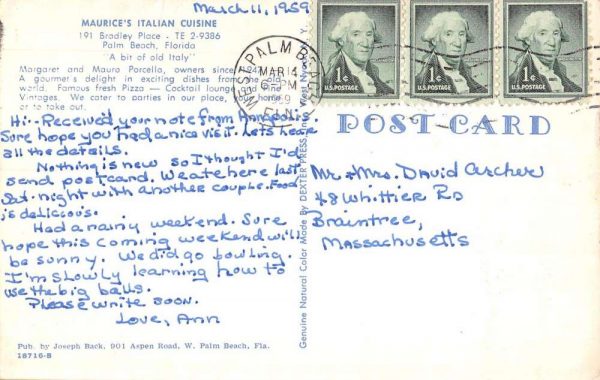 March 11, 1959
MAURICE'S ITALIAN CUISINE
191 Bradley Place - TE 2-9386
Palm Beach, Florida
'A bit of old Italy'
Margaret and Mauro Porcella, owners since 1947
A gourmet's delight in exciting dishes from the old
world. Famous fresh Pizza — Cocktail lounge and Fine
Vintages. We cater to parties in our place, your home
or to take out.
Hi - Received your note from Annapolis.
Sure hope you had a nice visit. Let's hear
all the details.
Nothing is new so I thought I'd
send postcard. We ate here last
Sat. night with another couple. Food
is delicious.
Had a rainy weekend. Sure
hope this coming weekend will
be sunny. We did go bowling.
I'm slowly learning how to
use the big balls.
Please write soon.
Love, Ann
Pub. by Joseph Back, 901 Aspen Road, W. Palm Beach, Fla.
18716-B
Genuine Natural Color Made By DEXTER PRESS, INC. West Nyack, N. Y.
WEST PALM BEACH
MAR 14
PM
1959
FLA.
1¢
U.S. POSTAGE
1¢
U.S. POSTAGE
1¢
U.S. POSTAGE
POST CARD
Mr + Mrs. David Archer
48 Whittier Rd
Braintree,
Massachusetts